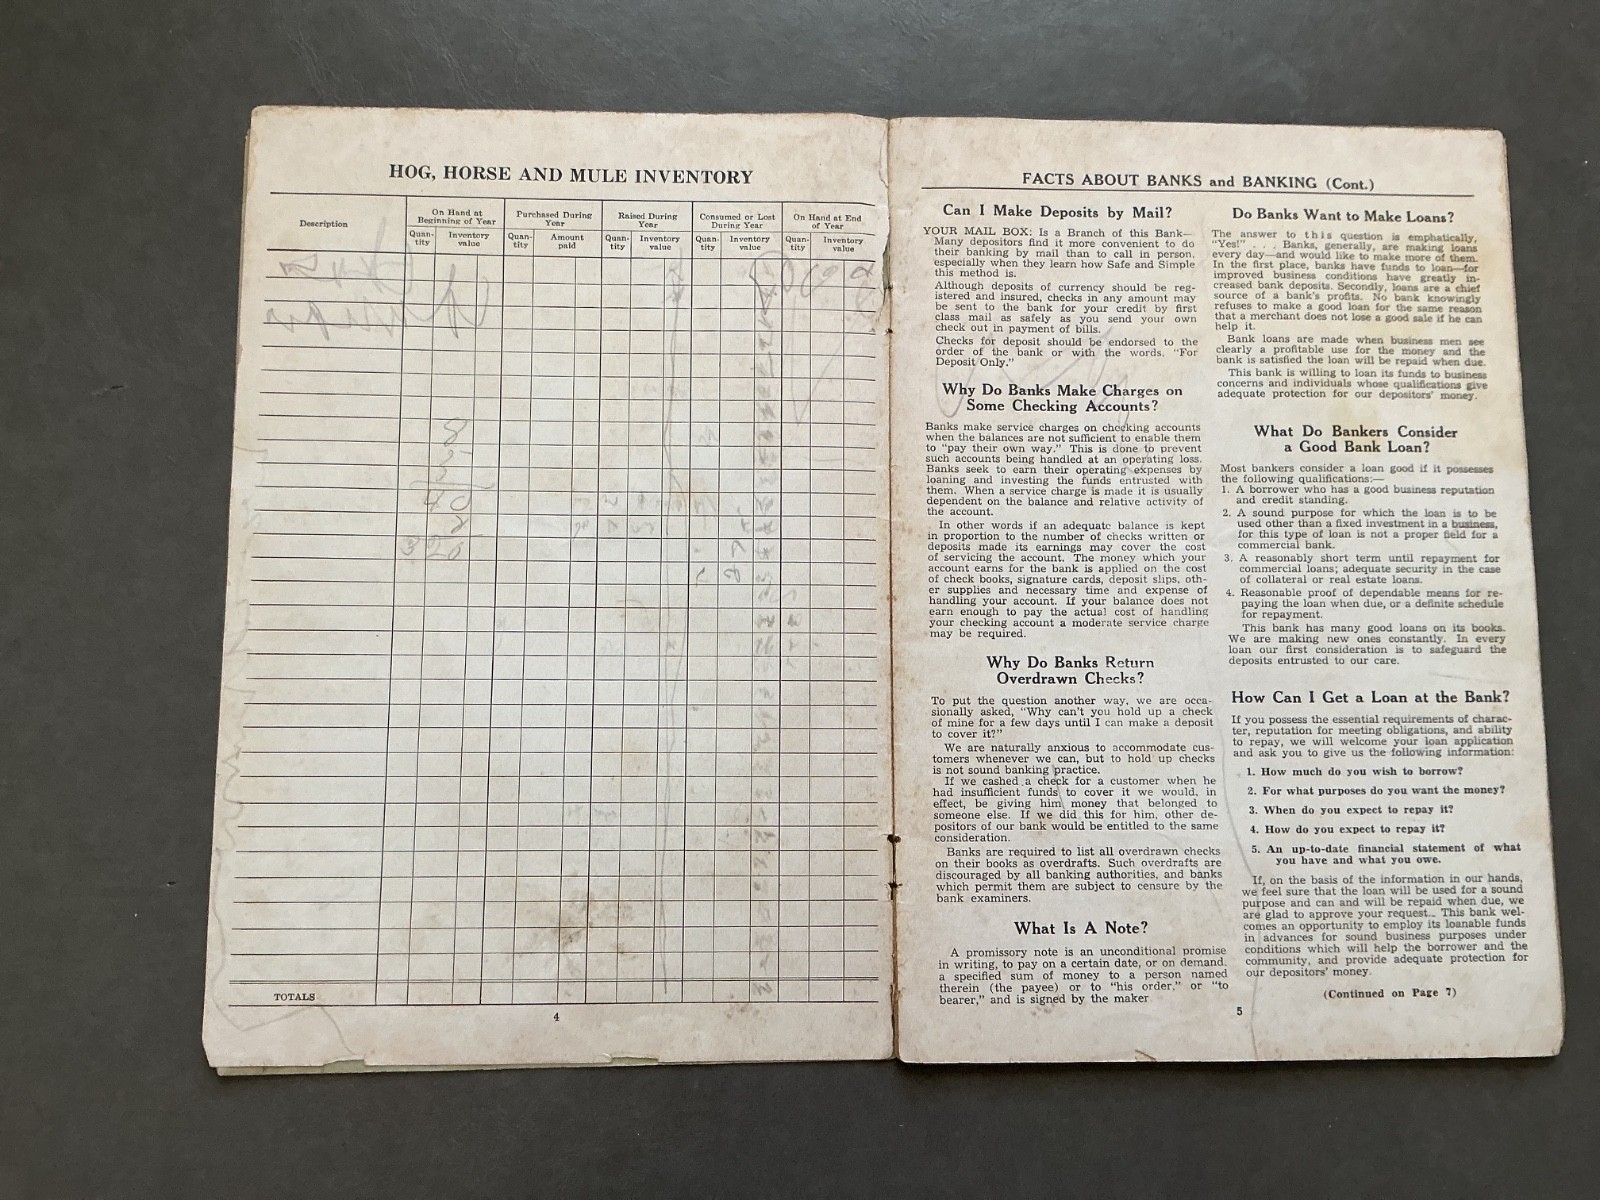 HOG, HORSE AND MULE INVENTORY
Description
On Hand at
Beginning of Year
Purchased During
Year
Raised During
Year
Consumed or Lost
During Year
On Hand at End
of Year
Quan-
tity
Inventory
value
Quan-
tity
Amount
paid
Quan-
tity
Inventory
value
Quan-
tity
Inventory
value
Quan-
tity
Inventory
value
8
5
40
8
320
TOTALS
4
FACTS ABOUT BANKS and BANKING (Cont.)
Can I Make Deposits by Mail?
YOUR MAIL BOX: Is a Branch of this Bank—
Many depositors find it more convenient to do
their banking by mail than to call in person,
especially when they learn how Safe and Simple
this method is.
Although deposits of currency should be reg-
istered and insured, checks in any amount may
be sent to the bank for your credit by first
class mail as safely as you send your own
check out in payment of bills.
Checks for deposit should be endorsed to the
order of the bank or with the words. "For
Deposit Only."
Why Do Banks Make Charges on
Some Checking Accounts?
Banks make service charges on checking accounts
when the balances are not sufficient to enable them
to "pay their own way." This is done to prevent
such accounts being handled at an operating loss.
Banks seek to earn their operating expenses by
loaning and investing the funds entrusted with
them. When a service charge is made it is usually
dependent on the balance and relative activity of
the account.
In other words if an adequate balance is kept
in proportion to the number of checks written or
deposits made its earnings may cover the cost
of servicing the account. The money which your
account earns for the bank is applied on the cost
of check books, signature cards, deposit slips, oth-
er supplies and necessary time and expense of
handling your account. If your balance does not
earn enough to pay the actual cost of handling
your checking account a moderate service charge
may be required.
Why Do Banks Return
Overdrawn Checks?
To put the question another way, we are occa-
sionally asked, "Why can't you hold up a check
of mine for a few days until I can make a deposit
to cover it?"
We are naturally anxious to accommodate cus-
tomers whenever we can, but to hold up checks
is not sound banking practice.
If we cashed a check for a customer when he
had insufficient funds to cover it we would, in
effect, be giving him money that belonged to
someone else. If we did this for him, other de-
positors of our bank would be entitled to the same
consideration.
Banks are required to list all overdrawn checks
on their books as overdrafts. Such overdrafts are
discouraged by all banking authorities, and banks
which permit them are subject to censure by the
bank examiners.
What Is A Note?
A promissory note is an unconditional promise
in writing, to pay on a certain date, or on demand,
a specified sum of money to a person named
therein (the payee) or to "his order," or "to
bearer," and is signed by the maker
Do Banks Want to Make Loans?
The answer to this question is emphatically,
"Yes!" . . . Banks, generally, are making loans
every day—and would like to make more of them.
In the first place, banks have funds to loan—for
improved business conditions have greatly in-
creased bank deposits. Secondly, loans are a chief
source of a bank's profits. No bank knowingly
refuses to make a good loan for the same reason
that a merchant does not lose a good sale if he can
help it.
Bank loans are made when business men see
clearly a profitable use for the money and the
bank is satisfied the loan will be repaid when due.
This bank is willing to loan its funds to business
concerns and individuals whose qualifications give
adequate protection for our depositors' money.
What Do Bankers Consider
a Good Bank Loan?
Most bankers consider a loan good if it possesses
the following qualifications:—
1. A borrower who has a good business reputation
and credit standing.
2. A sound purpose for which the loan is to be
used other than a fixed investment in a business,
for this type of loan is not a proper field for a
commercial bank.
3. A reasonably short term until repayment for
commercial loans; adequate security in the case
of collateral or real estate loans.
4. Reasonable proof of dependable means for re-
paying the loan when due, or a definite schedule
for repayment.
This bank has many good loans on its books.
We are making new ones constantly. In every
loan our first consideration is to safeguard the
deposits entrusted to our care.
How Can I Get a Loan at the Bank?
If you possess the essential requirements of charac-
ter, reputation for meeting obligations, and ability
to repay, we will welcome your loan application
and ask you to give us the following information:
1. How much do you wish to borrow?
2. For what purposes do you want the money?
3. When do you expect to repay it?
4. How do you expect to repay it?
5. An up-to-date financial statement of what
you have and what you owe.
If, on the basis of the information in our hands,
we feel sure that the loan will be used for a sound
purpose and can and will be repaid when due, we
are glad to approve your request. This bank wel-
comes an opportunity to employ its loanable funds
in advances for sound business purposes under
conditions which will help the borrower and the
community, and provide adequate protection for
our depositors' money.
(Continued on Page 7)
5